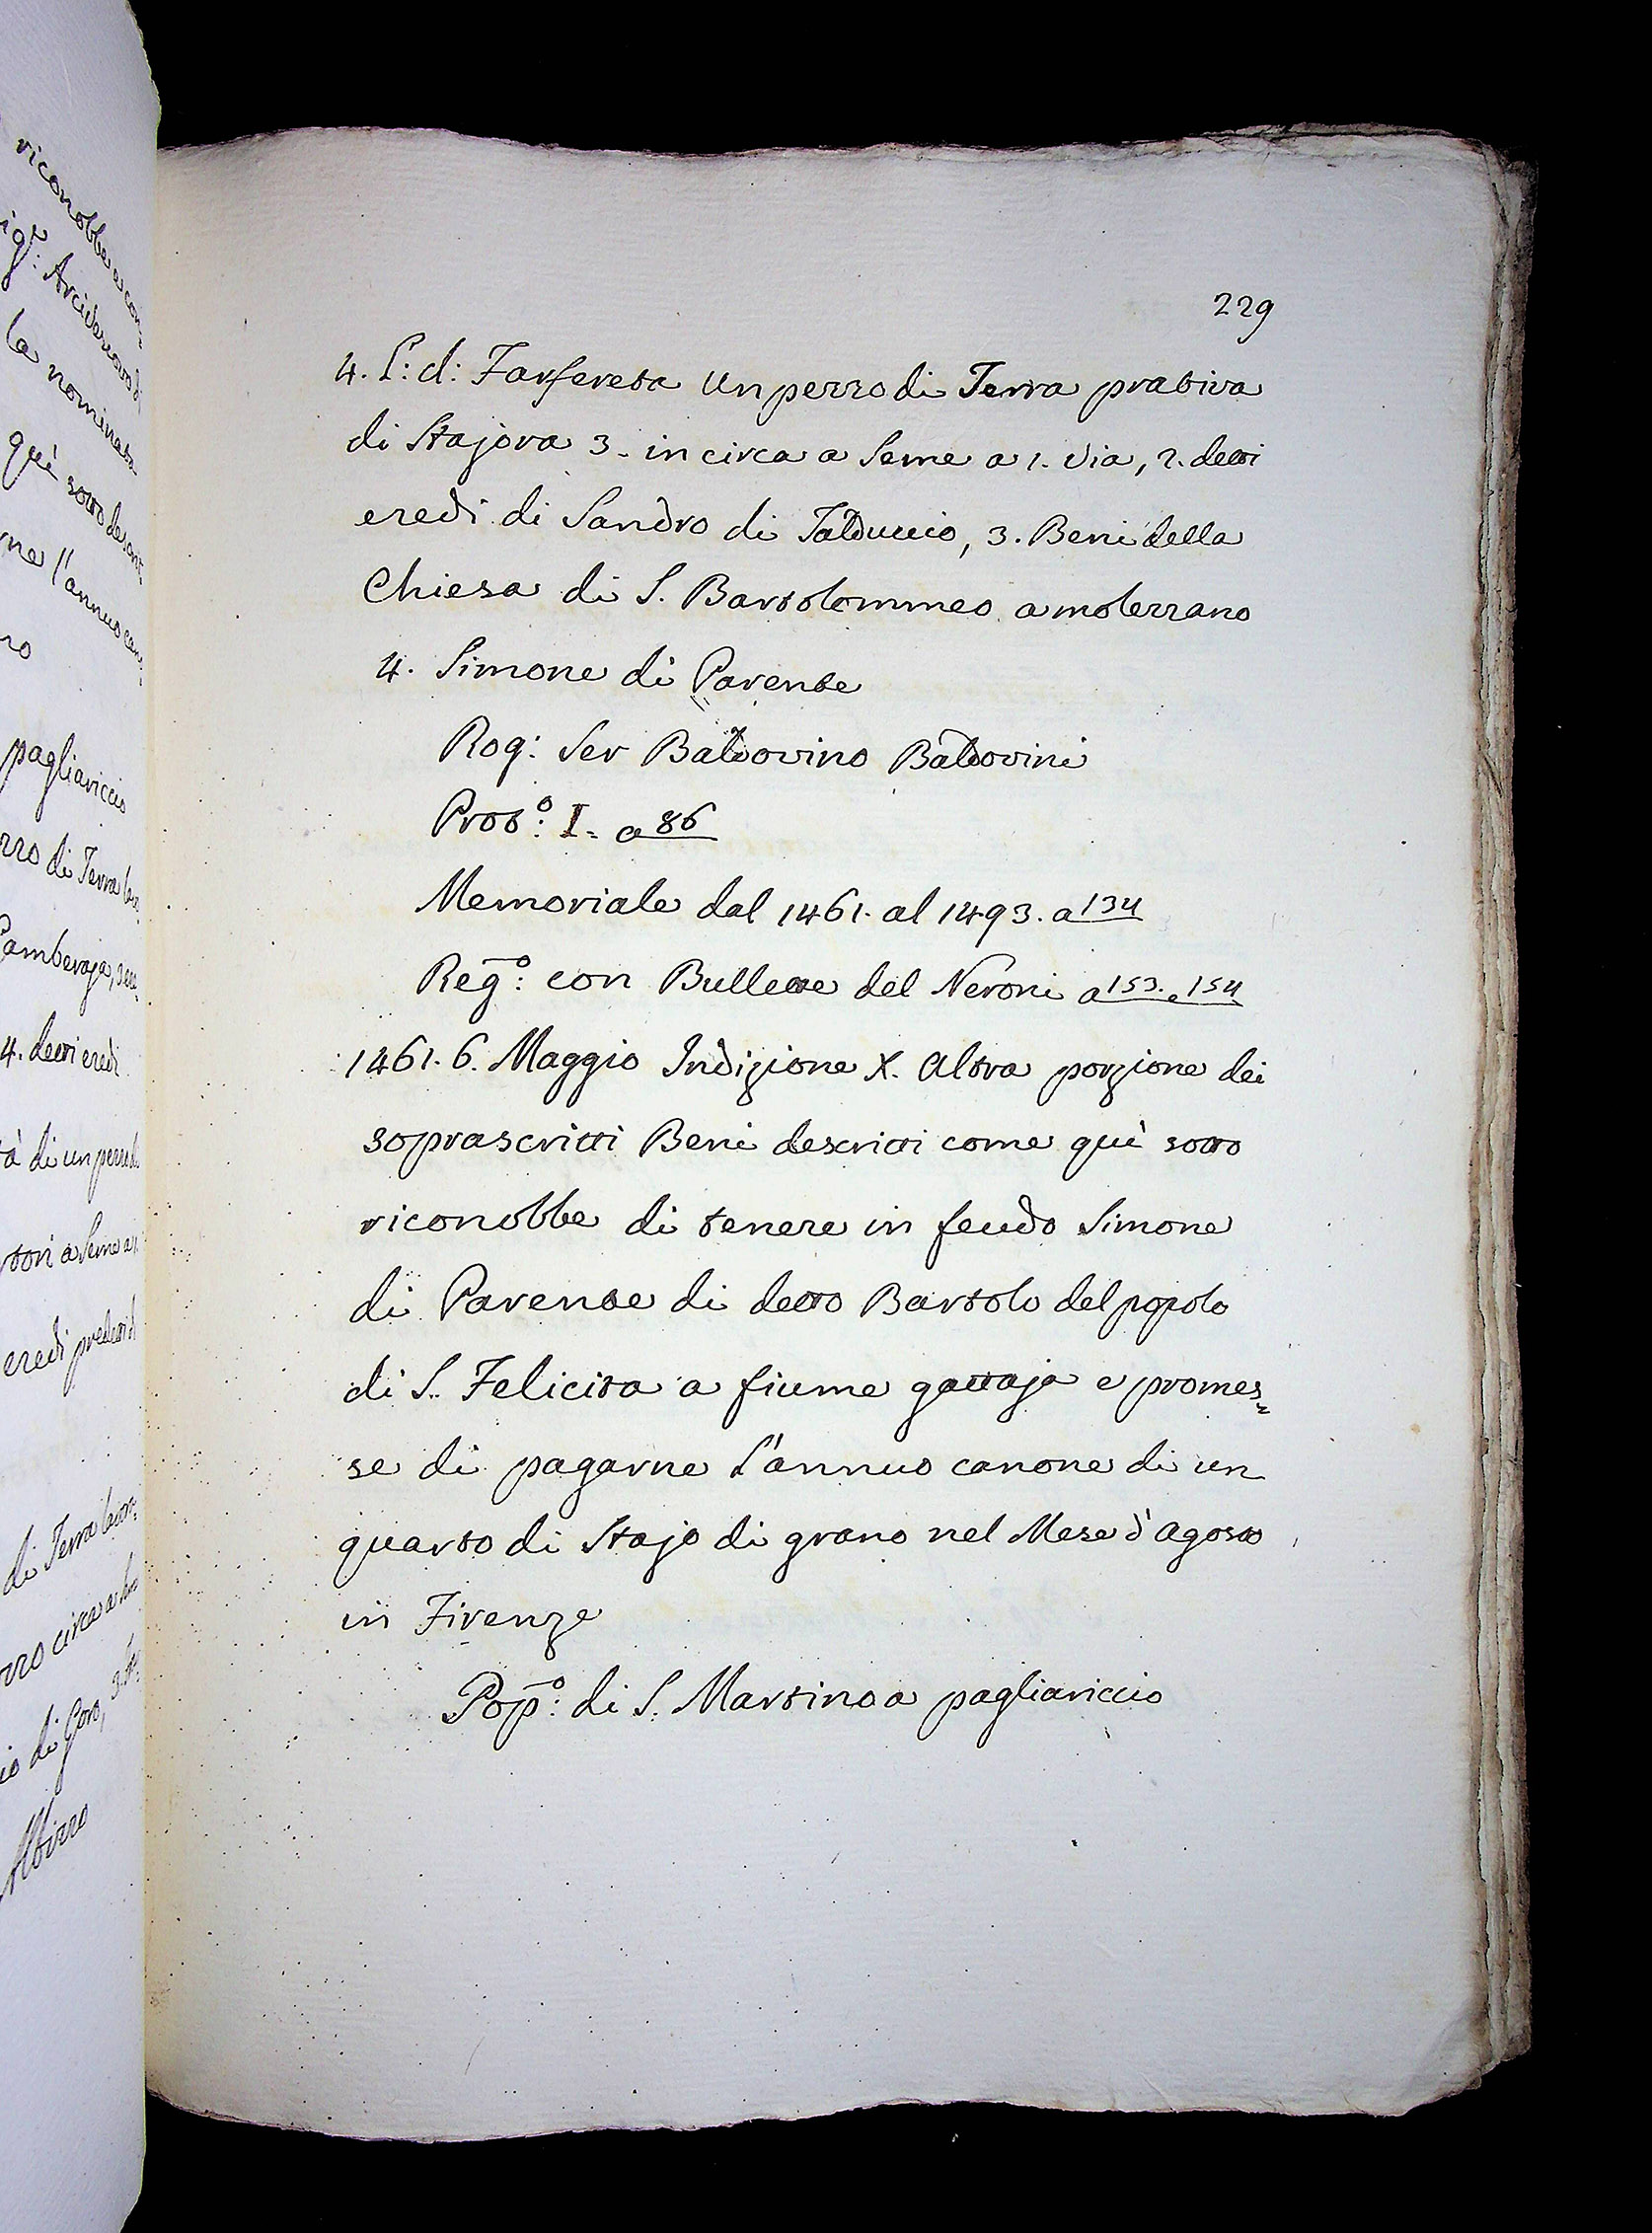 229
4. L: d: Farfereta Un pezzo di Terra prativa
di Stajora 3. in circa a Seme a 1. Via, 2. detti
eredi di Sandro di Talduccio, 3. Beni della
Chiesa di S. Bartolommeo a molezzano
4. Simone di Parente
Rog: Ser Baldovino Baldovini
Prot.º: I. a 86
Memoriale dal 1461. al 1493. a 134
Reg.º: con Bullette del Neroni a 153. e 154
1461. 6. Maggio Indizione X. Altra porzione dei
soprascritti Beni descritti come quì sotto
riconobbe di tenere in feudo Simone
di Parente di detto Bartolo del popolo
di S. Felicita a fiume gattaja e promes=
se di pagarne l'annuo canone di un
quarto di Stajo di grano nel Mese d'agosto
in Firenze
Pop.º: di S. Martino a pagliariccio
riconobbe
la nominata
quì sotto
ne l'annuo
no
pagliariccio
zzo di Terra
4. detti eredi
tà di un pezzo
a Seme a
eredi
di Terra
zzo circa a
io di Goro, 3.